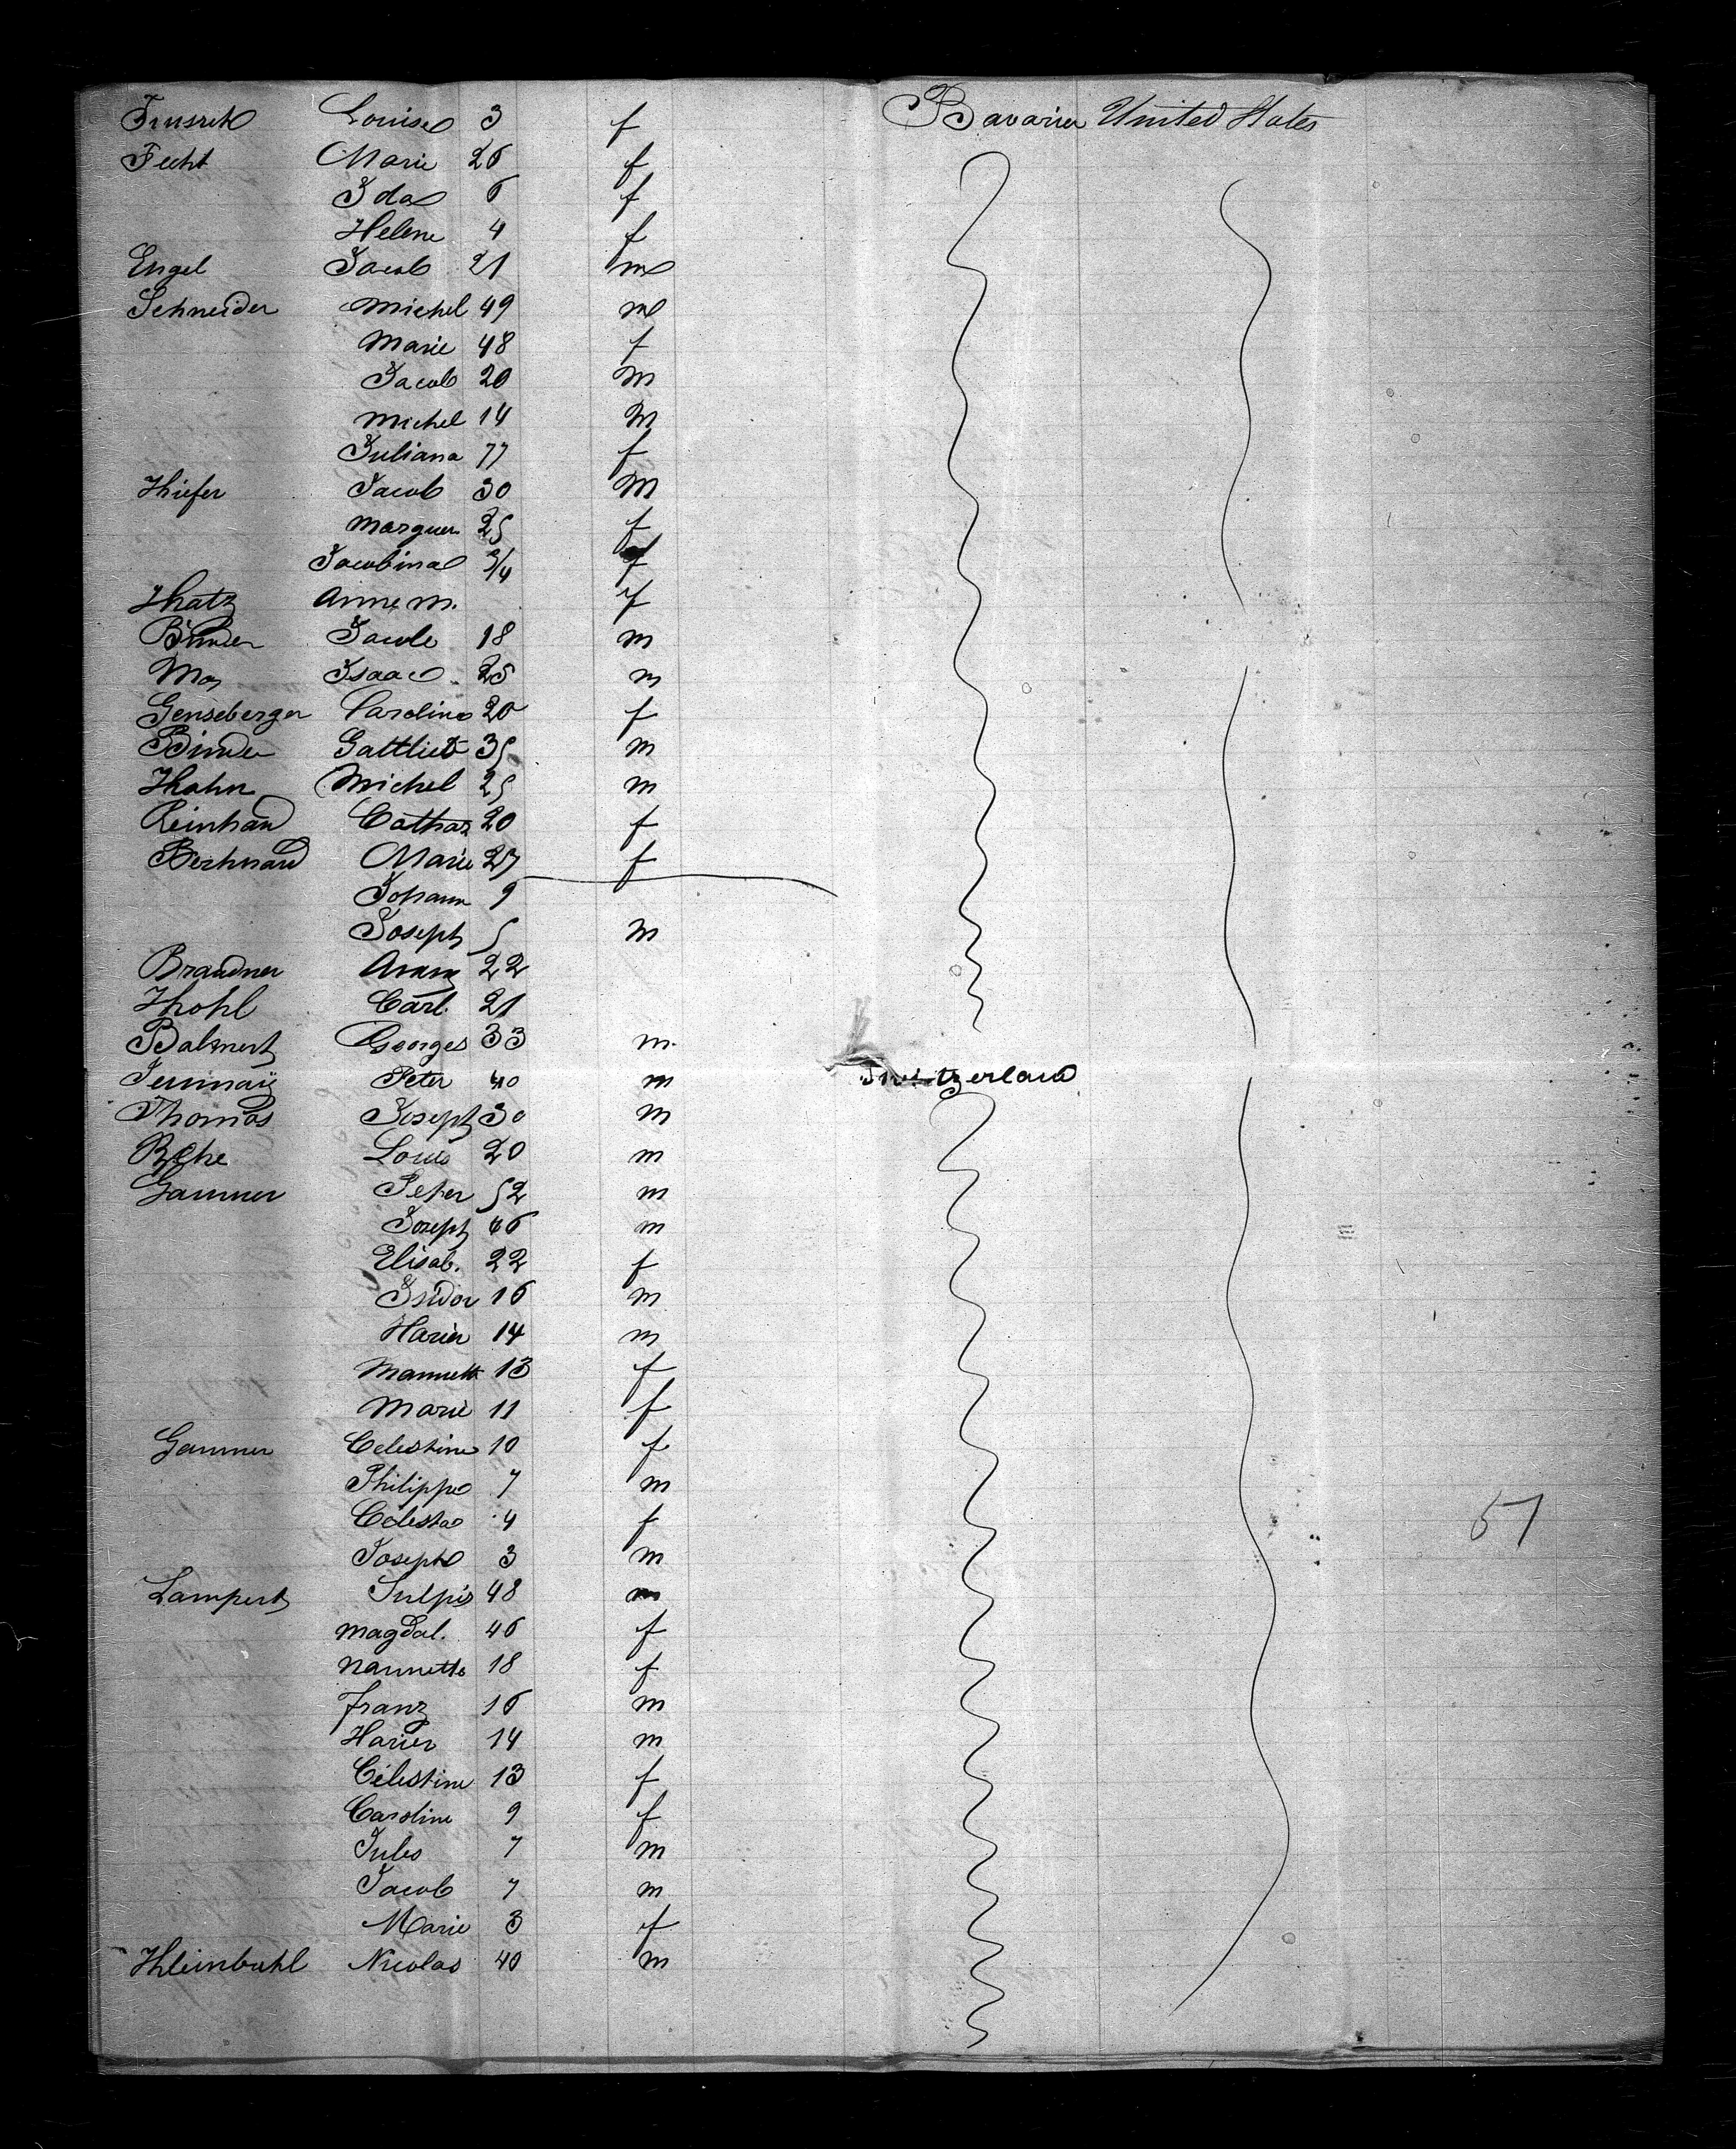 Louise 3 f Bavaria United States
Fecht Marie 26 f
Ida 6 f
Helene 4 f
Engel Jacob 21 m
Schneider Michel 49 m
Marie 48 f
Jacob 20 m
Michel 14 m
Juliana 77 f
Kiefer Jacob 30 m
Marguer 25 f
Jacobina 3/4 f
Katz Anne M. f
Binder Jacob 18 m
May Isaac 25 m
Genseberger Caroline 20 f
Binder Gottlieb 35 m
Hahn Michel 25 m
Reinhard Cathar 20 f
Berhnard Marie 27 f
Johann 9
Joseph 5 m
Brandner 22
Kohl Carl. 21
Balmert Georges 33 m.
Peter 40 m Switzerland
Thomas Joseph 30 m
Louis 20 m
Gammer Peter 52 m
Joseph 46 m
Elisab. 22 f
Isidor 16 m
14 m
Mannett 13 f
Marie 11 f
Gammer Celestine 10 f
Philippe 7 m
Celesta 4 f
Joseph 3 m
Lampert Sulpis 48 m
Magdal. 46 f
Nannette 18 f
Franz 16 m
14 m
Célestine 13 f
Caroline 9 f
Jules 7 m
Jacob 7 m
Marie 3 f
Kleinbuhl Nicolas 40 m
51